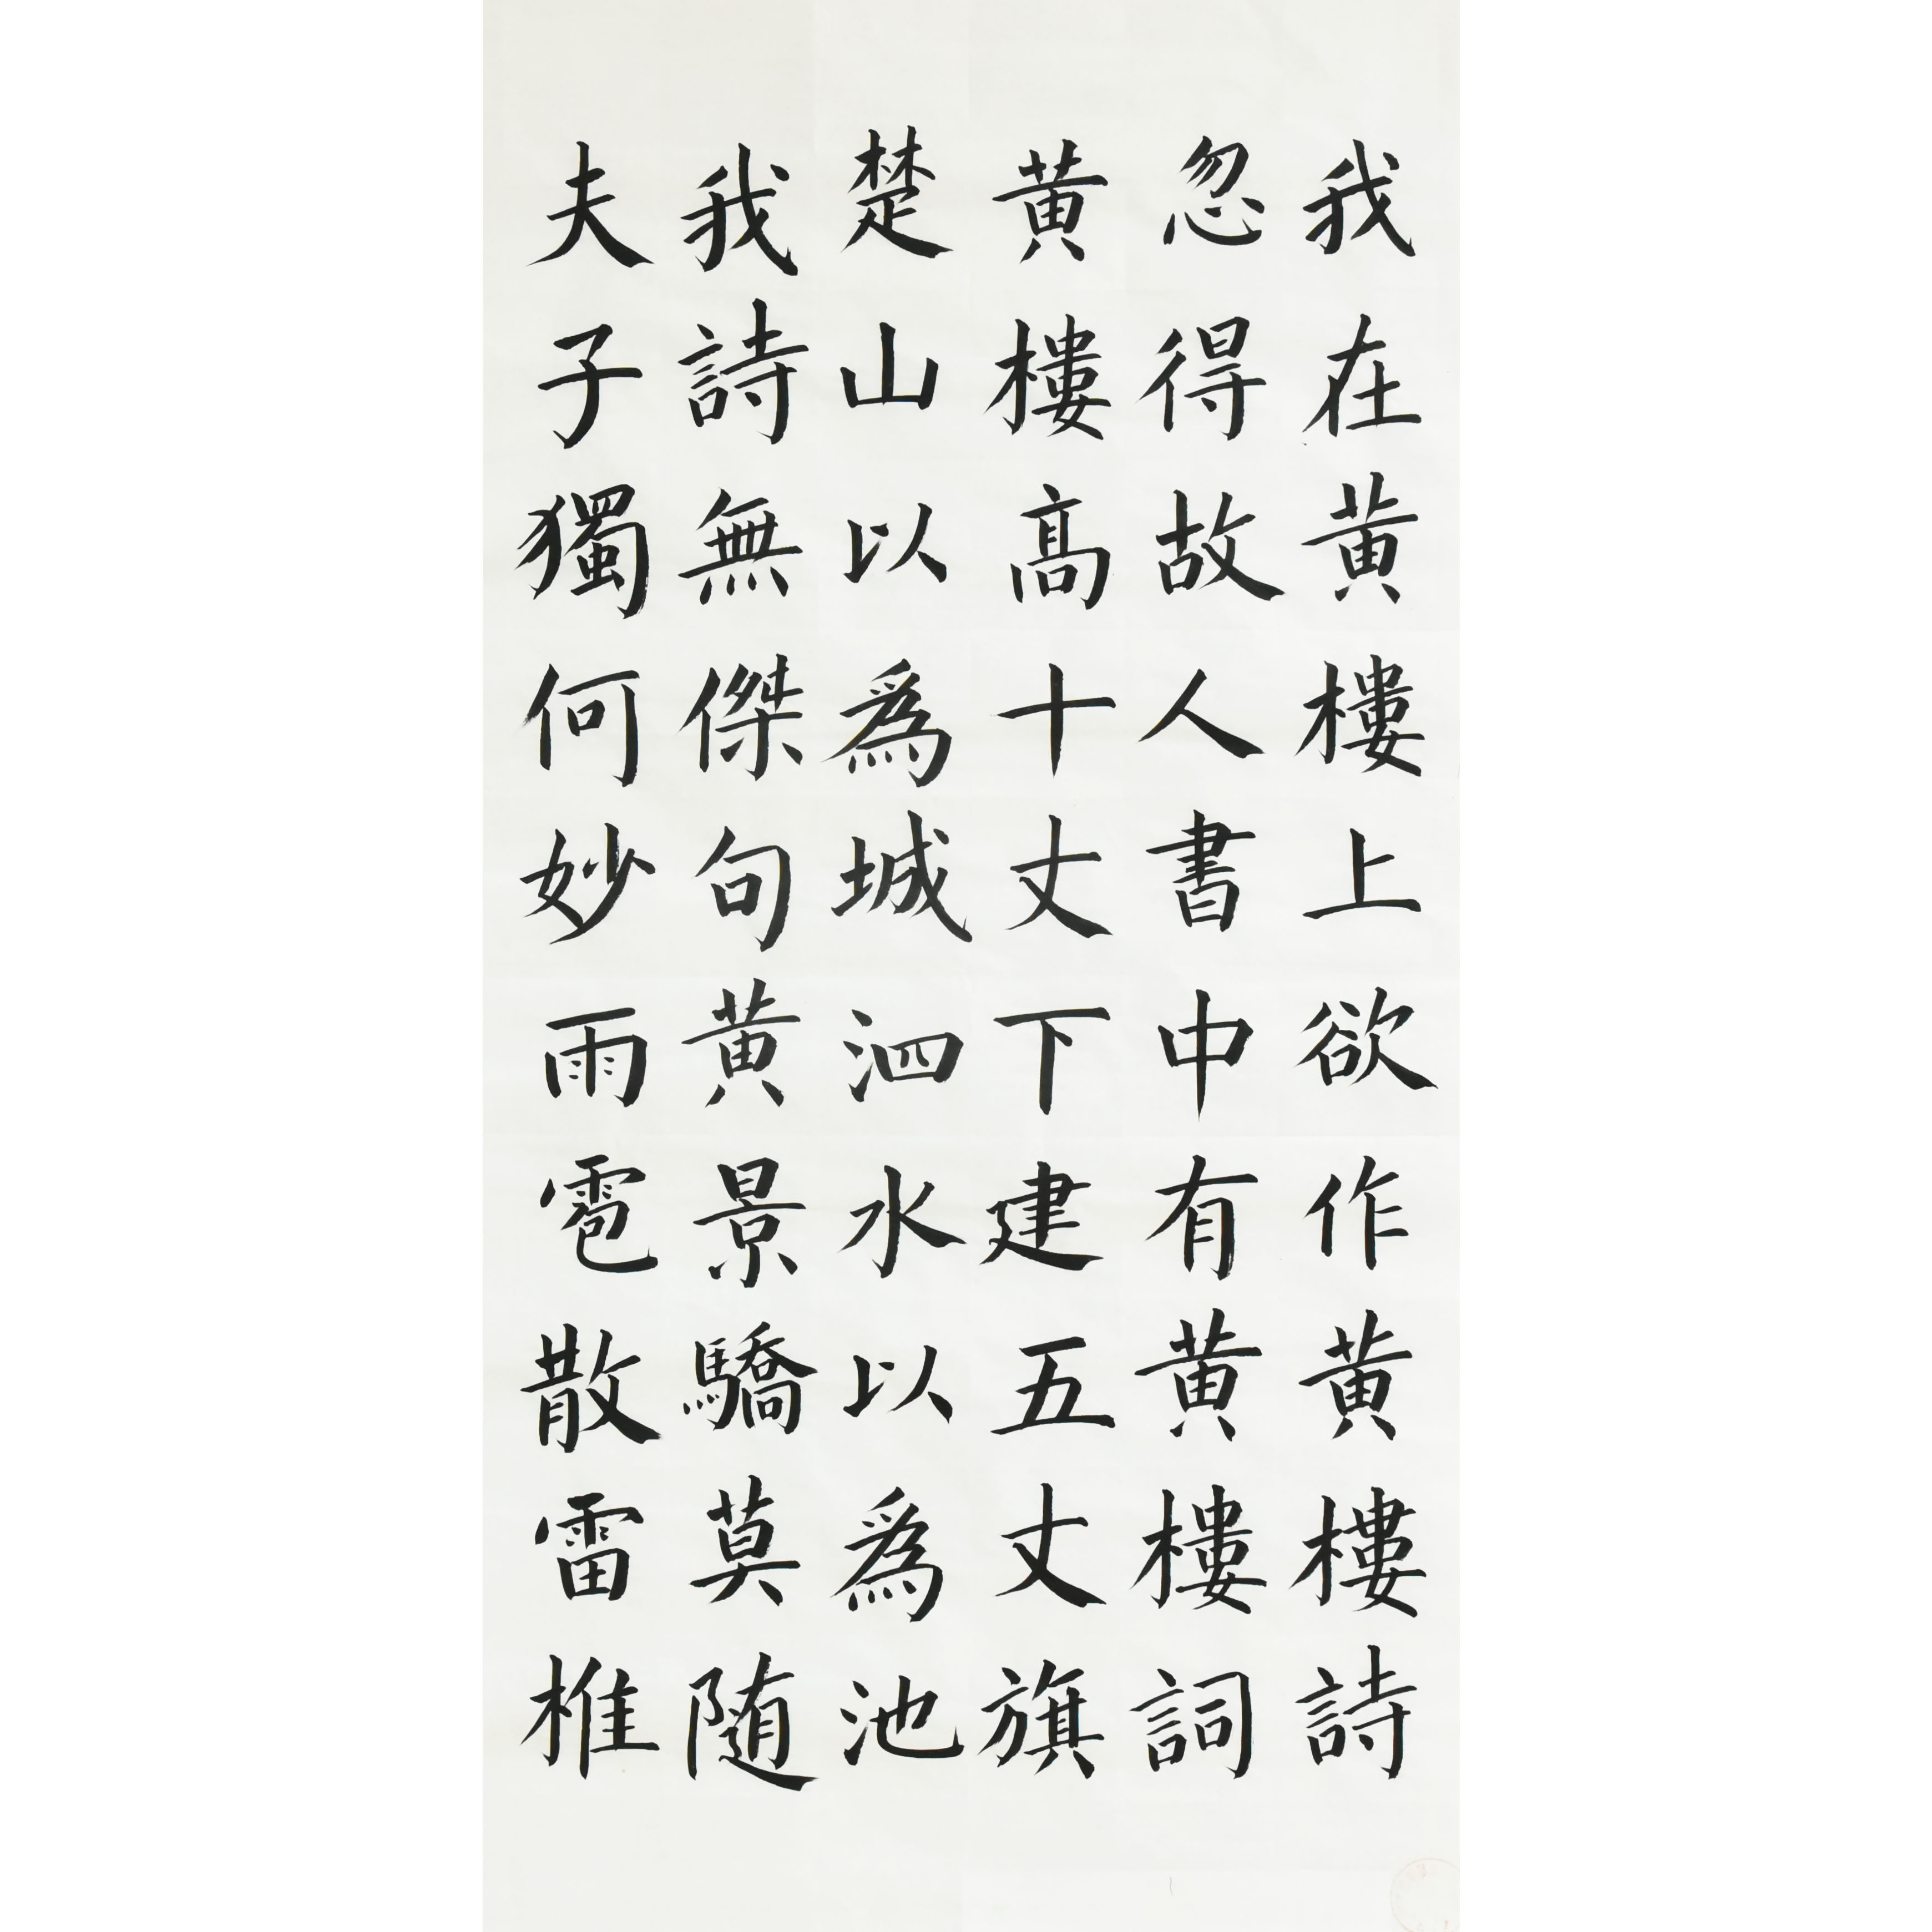 我在黃樓上欲作黃樓詩
忽得故人書中有黃樓詞
黃樓髙十丈下建五丈旗
楚山以為城泗水以為池
我詩無傑句黃景驕莫随
夫子獨何妙雨雹散雷椎